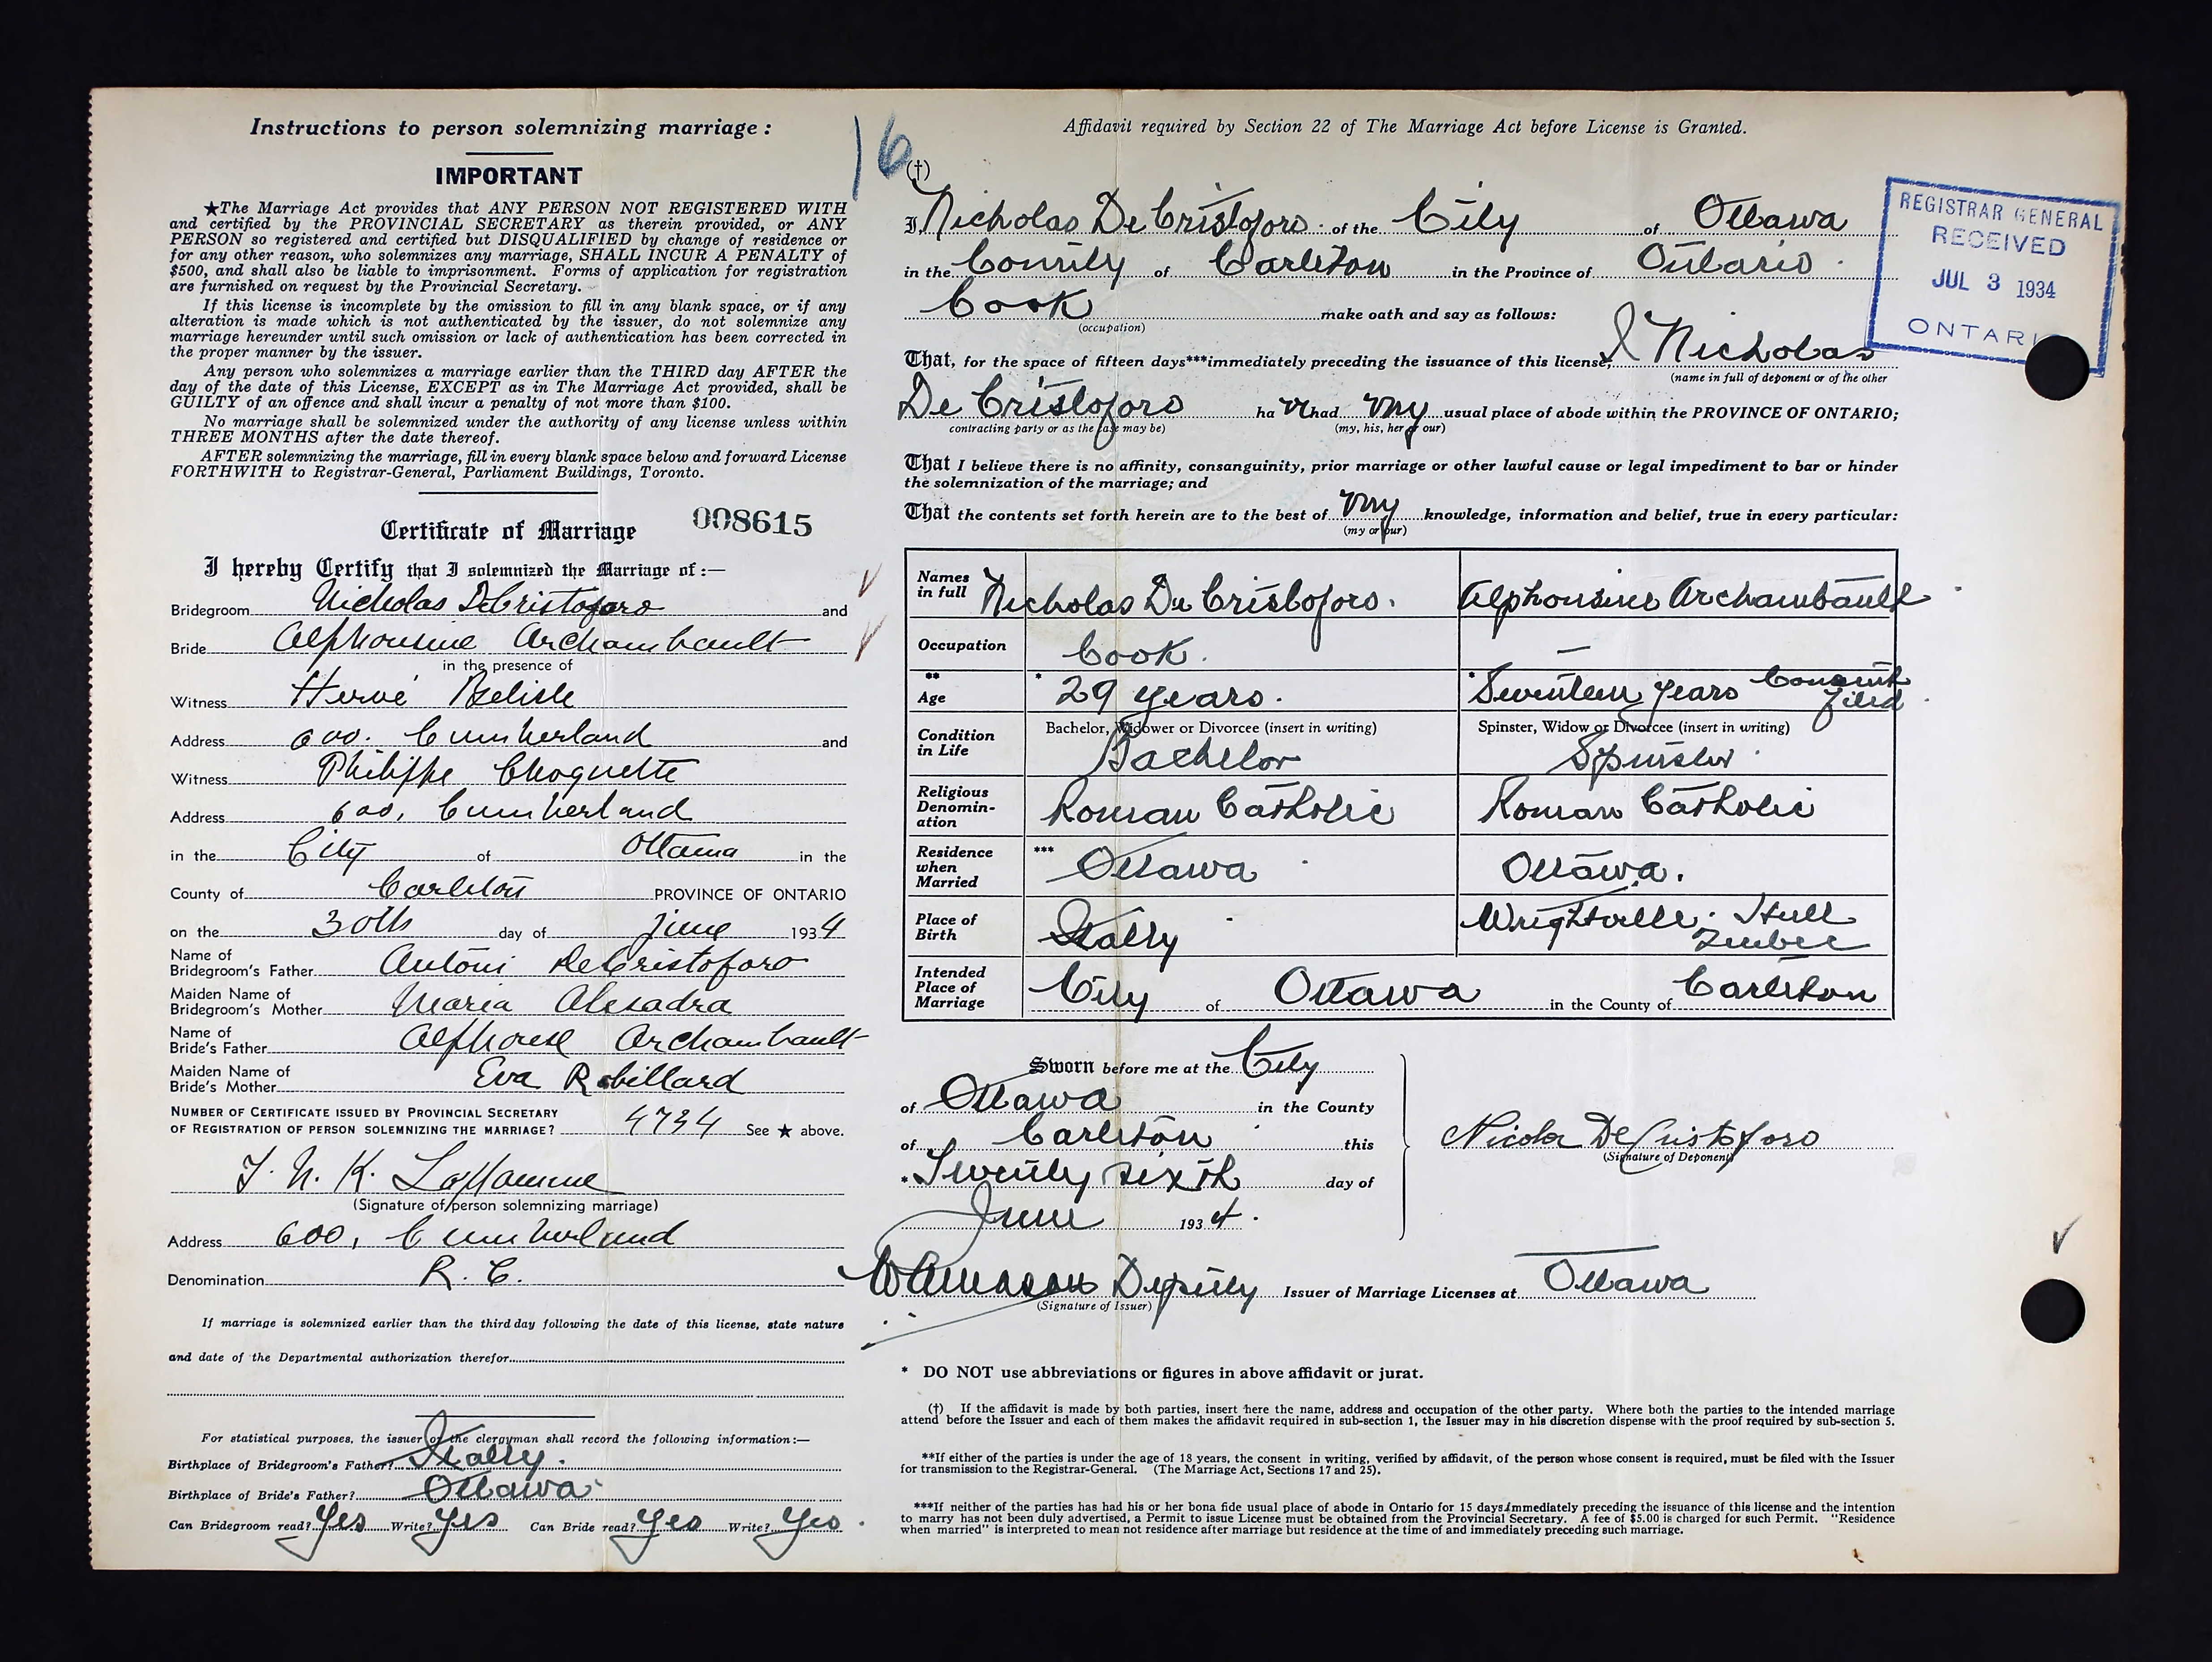 Instructions to person solemnizing marriage :
IMPORTANT
★The Marriage Act provides that ANY PERSON NOT REGISTERED WITH
and certified by the PROVINCIAL SECRETARY as therein provided, or ANY
PERSON so registered and certified but DISQUALIFIED by change of residence or
for any other reason, who solemnizes any marriage, SHALL INCUR A PENALTY of
$500, and shall also be liable to imprisonment. Forms of application for registration
are furnished on request by the Provincial Secretary.
If this license is incomplete by the omission to fill in any blank space, or if any
alteration is made which is not authenticated by the issuer, do not solemnize any
marriage hereunder until such omission or lack of authentication has been corrected in
the proper manner by the issuer.
Any person who solemnizes a marriage earlier than the THIRD day AFTER the
day of the date of this License, EXCEPT as in The Marriage Act provided, shall be
GUILTY of an offence and shall incur a penalty of not more than $100.
No marriage shall be solemnized under the authority of any license unless within
THREE MONTHS after the date thereof.
AFTER solemnizing the marriage, fill in every blank space below and forward License
FORTHWITH to Registrar-General, Parliament Buildings, Toronto.
Certificate of Marriage 008615
I hereby Certify that I solemnized the Marriage of :—
Bridegroom Nicholas DeCristoforo and
Bride Alphonsine Archambault
in the presence of
Witness Hervé Belisle
Address 600. Cumberland and
Witness Philippe Choquette
Address 600, Cumberland
in the City of Ottawa in the
County of Carleton PROVINCE OF ONTARIO
on the 30th day of June 1934
Name of
Bridegroom's Father Antoni DeCristoforo
Maiden Name of
Bridegroom's Mother Maria Alesadra
Name of
Bride's Father Alphonse Archambault
Maiden Name of
Bride's Mother Eva Robillard
NUMBER OF CERTIFICATE ISSUED BY PROVINCIAL SECRETARY
OF REGISTRATION OF PERSON SOLEMNIZING THE MARRIAGE? 4734 See ★ above.
J. N. K. Laflamme
(Signature of person solemnizing marriage)
Address 600, Cumberland
Denomination R. C.
If marriage is solemnized earlier than the third day following the date of this license, state nature
and date of the Departmental authorization therefor
For statistical purposes, the issuer or the clergyman shall record the following information:—
Birthplace of Bridegroom's Father? Italy.
Birthplace of Bride's Father? Ottawa
Can Bridegroom read? Yes Write? Yes Can Bride read? Yes Write? Yes.
16
Affidavit required by Section 22 of The Marriage Act before License is Granted.
(†)
I, Nicholas De Cristoforo of the City of Ottawa
in the County of Carleton in the Province of Ontario.
Cook make oath and say as follows:
(occupation)
That, for the space of fifteen days***immediately preceding the issuance of this license, I Nicholas
(name in full of deponent or of the other
De Cristoforo ha ve had my usual place of abode within the PROVINCE OF ONTARIO;
contracting party or as the case may be) (my, his, her or our)
That I believe there is no affinity, consanguinity, prior marriage or other lawful cause or legal impediment to bar or hinder
the solemnization of the marriage; and
That the contents set forth herein are to the best of my knowledge, information and belief, true in every particular:
(my or our)
REGISTRAR GENERAL
RECEIVED
JUL 3 1934
ONTARI
Names in full Nicholas De Cristoforo. Alphonsine Archambault
Occupation Cook. —
** Age * 29 years. * Seventeen years Consent filed
Condition in Life Bachelor, Widower or Divorcee (insert in writing) Spinster, Widow or Divorcee (insert in writing)
Bachelor Spinster
Religious Denomin-ation Roman Catholic Roman Catholic
Residence when Married *** Ottawa Ottawa.
Place of Birth Italy Wrightville. Hull Quebec
Intended Place of Marriage City of Ottawa in the County of Carleton
Sworn before me at the City
of Ottawa in the County
of Carleton this
* Twenty sixth day of
June 1934.
Nicola De Cristoforo
(Signature of Deponent)
Deputy Issuer of Marriage Licenses at Ottawa
(Signature of Issuer)
* DO NOT use abbreviations or figures in above affidavit or jurat.
(†) If the affidavit is made by both parties, insert here the name, address and occupation of the other party. Where both the parties to the intended marriage
attend before the Issuer and each of them makes the affidavit required in sub-section 1, the Issuer may in his discretion dispense with the proof required by sub-section 5.
**If either of the parties is under the age of 18 years, the consent in writing, verified by affidavit, of the person whose consent is required, must be filed with the Issuer
for transmission to the Registrar-General. (The Marriage Act, Sections 17 and 25).
***If neither of the parties has had his or her bona fide usual place of abode in Ontario for 15 days immediately preceding the issuance of this license and the intention
to marry has not been duly advertised, a Permit to issue License must be obtained from the Provincial Secretary. A fee of $5.00 is charged for such Permit. "Residence
when married" is interpreted to mean not residence after marriage but residence at the time of and immediately preceding such marriage.